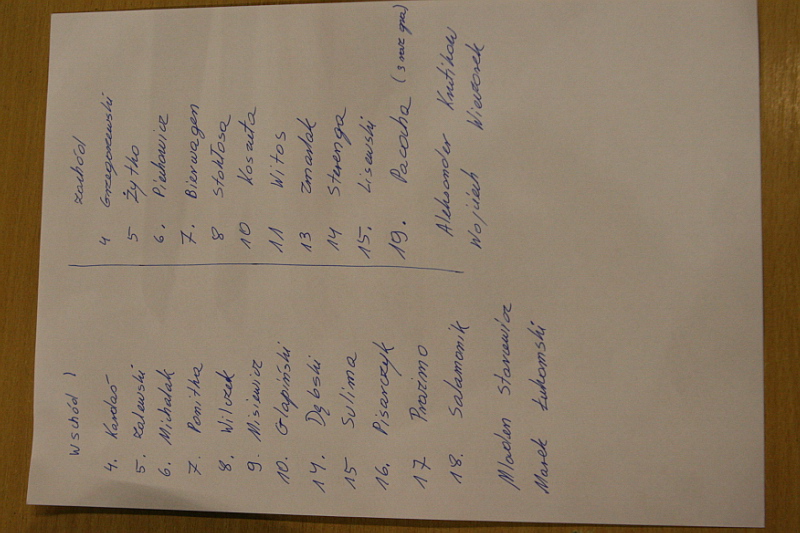 Wschód
4. Kardaś
5. Zalewski
6. Michalak
7. Ponitka
8. Wilczek
9. Misiewicz
10. Glapiński
14. Dąbski
15 Sulima
16. Pisarczyk
17 Prażmo
18. Salamonik
Mladen Starcewicz
Marek Łukomski
zachód
4 Grzegorzewski
5 Żytko
6. Piechowicz
7. Bierwagen
8 Stokłosa
10 Koszuta
11 Witos
13 Zmarlak
14 Sterenga
15. Lisewski
19. Pacocha (3 raz gra)
Aleksander Krutikow
Wojciech Wieczorek